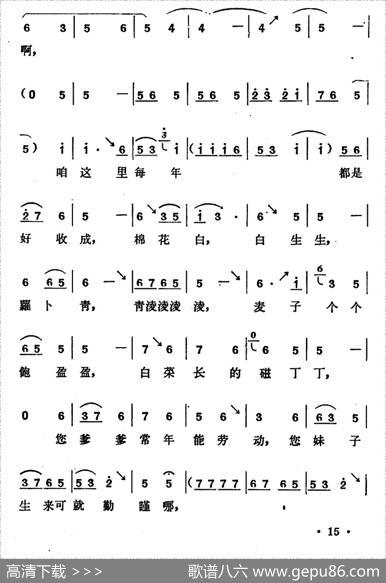 6 3 | 5 6 | 6 5 4 | 4 4 — | 4 ↘ 5 | 5 — |
啊，
(0 5 | 5 — | 5 6 5 | 5 6 5 | 2 3 2 1 | 7 6 5 |
5) i | i · ↘ 6 | 5 3 i | (i i i 6 | i 3 i | i) 5 6 |
咱 这 里 每 年 都是
2 7 6 | 5 — | 6 ↘ 3 5 | i 3 · | 6 ↘ 5 | 5 — |
好 收 成， 棉 花 白， 白 生 生，
6 6 5 | 6 — ↘ | 6 7 6 5 | 5 — ↘ | 6 · ↗ i | 3 5 |
蘿 卜 青， 青淩淩淩 淩， 麦 子 个 个
6 5 5 | 5 — | 7 ↘ 6 | 7 6 | 6 5 | 5 — |
飽 盈 盈， 白 菜 长 的 磁 丁 丁，
0 6 | 3 7 6 | 7 6 ↘ | 5 ↘ | 3 6 | 6 3 5 |
您 爹 爹 常 年 能 劳 动， 您 妹 子
3 7 6 5 | 5 3 2 ↘ | 5 5 | (7 7 7 7 | 6 7 6 5 | 5 3 2 ↘ |
生 来 可 就 勤 謹 哪，
• 15 •
高清下载 >>>
歌谱八六 www.gepu86.com